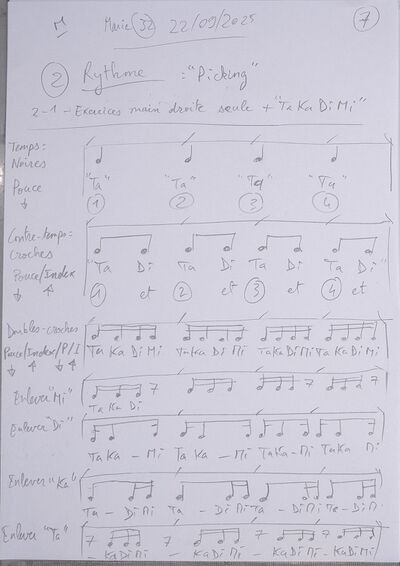 M Marie 32 22/09/2025 7
2 Rythme : "Picking"
2-1- Exercices main droite seule + "TaKaDiMi"
Temps :
Noires
Pouce
"Ta" "Ta" "Ta" "Ta"
1 2 3 4
Contre-temps :
Croches
Pouce/Index
"Ta Di Ta Di Ta Di Ta Di"
1 et 2 et 3 et 4 et
Doubles-croches
Pouce/Index/P/I
TaKaDiMi TaKaDiMi TaKaDiMi TaKaDiMi
Enlever "Mi"
TaKaDi
Enlever "Di"
TaKa - Mi Ta Ka - Mi TaKa - Mi TaKa Mi
Enlever "Ka"
Ta - DiMi Ta - DiMi Ta - DiMi Ta - DiMi
Enlever "Ta"
- KaDiMi - KaDiMi - KaDiMi - KaDiMi